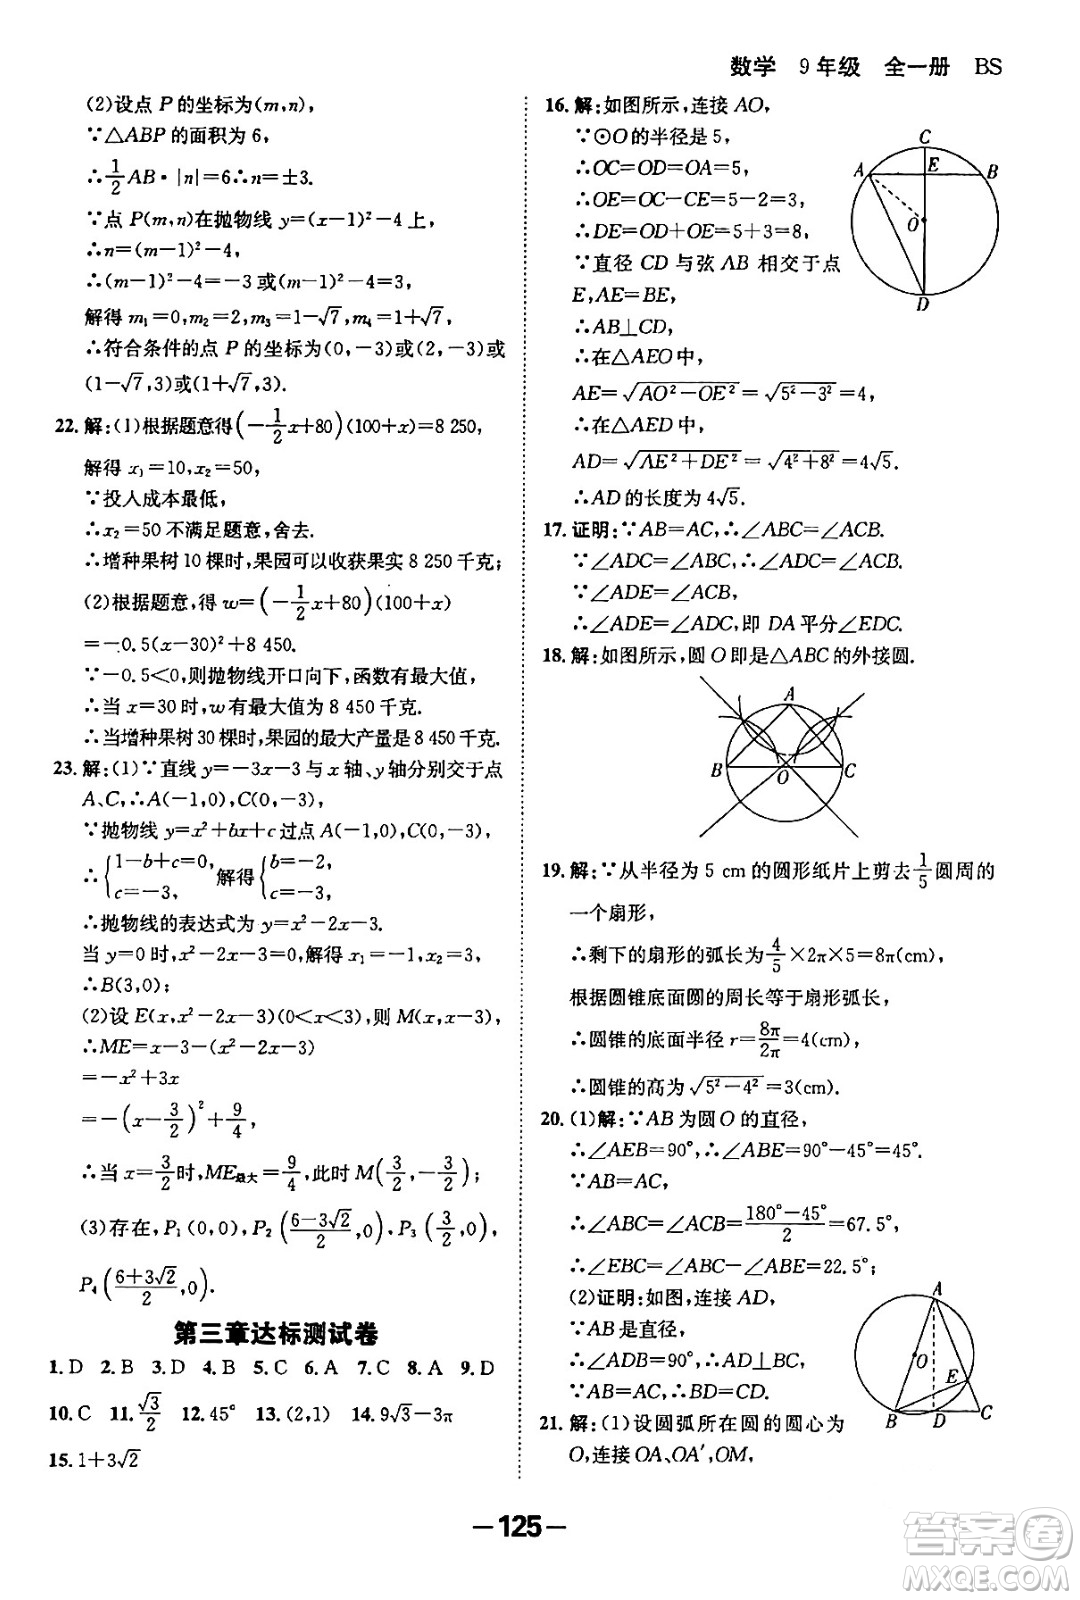 数学　9年级　全一册　BS
(2)设点 P 的坐标为(m,n),
∵△ABP 的面积为 6,
∴1/2 AB·|n|=6∴n=±3.
∵点 P(m,n)在抛物线 y=(x-1)²-4 上,
∴n=(m-1)²-4,
∴(m-1)²-4=-3 或(m-1)²-4=3,
解得 m₁=0,m₂=2,m₃=1-√7,m₄=1+√7,
∴符合条件的点 P 的坐标为(0,-3)或(2,-3)或
(1-√7,3)或(1+√7,3).
22. 解:(1)根据题意得(-1/2 x+80)(100+x)=8 250,
解得 x₁=10,x₂=50,
∵投人成本最低,
∴x₂=50 不满足题意,舍去.
∴增种果树 10 棵时,果园可以收获果实 8 250 千克;
(2)根据题意,得 w=(-1/2 x+80)(100+x)
=-0.5(x-30)²+8 450.
∵-0.5<0,则抛物线开口向下,函数有最大值,
∴当 x=30 时,w有最大值为 8 450 千克.
∴当增种果树 30 棵时,果园的最大产量是 8 450 千克.
23. 解:(1)∵直线 y=-3x-3 与 x 轴、y 轴分别交于点
A、C,∴A(-1,0),C(0,-3),
∵抛物线 y=x²+bx+c 过点 A(-1,0),C(0,-3),
∴{1-b+c=0, c=-3, 解得{b=-2, c=-3,
∴抛物线的表达式为 y=x²-2x-3.
当 y=0 时,x²-2x-3=0,解得 x₁=-1,x₂=3,
∴B(3,0);
(2)设 E(x,x²-2x-3)(0<x<3),则 M(x,x-3),
∴ME=x-3-(x²-2x-3)
=-x²+3x
=-(x-3/2)²+9/4,
∴当 x=3/2时,ME最大=9/4,此时 M(3/2,-3/2);
(3)存在,P₁(0,0),P₂((6-3√2)/2,0),P₃(3/2,0),
P₄((6+3√2)/2,0).
第三章达标测试卷
1. D　2. B　3. D　4. B　5. C　6. A　7. C　8. A　9. D
10. C　11. √3/2　12. 45°　13. (2,1)　14. 9√3-3π
15. 1+3√2
16. 解:如图所示,连接 AO,
∵⊙O 的半径是 5,
∴OC=OD=OA=5,
∴OE=OC-CE=5-2=3,
∴DE=OD+OE=5+3=8,
∵直径 CD 与弦 AB 相交于点
E,AE=BE,
∴AB⊥CD,
∴在△AEO 中,
AE=√(AO²-OE²)=√(5²-3²)=4,
∴在△AED 中
AD=√(AE²+DE²)=√(4²+8²)=4√5.
∴AD 的长度为 4√5.
C
A E B
O
D
17. 证明:∵AB=AC,∴∠ABC=∠ACB.
∵∠ADC=∠ABC,∴∠ADC=∠ACB.
∵∠ADE=∠ACB,
∴∠ADE=∠ADC,即 DA 平分∠EDC.
18. 解:如图所示,圆 O 即是△ABC 的外接圆.
A
B O C
19. 解:∵从半径为 5 cm 的圆形纸片上剪去1/5圆周的
一个扇形,
∴剩下的扇形的弧长为4/5×2π×5=8π(cm),
根据圆锥底面圆的周长等于扇形弧长,
∴圆锥的底面半径 r=8π/2π=4(cm),
∴圆锥的高为√(5²-4²)=3(cm).
20. (1)解:∵AB 为圆 O 的直径,
∴∠AEB=90°,∴∠ABE=90°-45°=45°,
∵AB=AC,
∴∠ABC=∠ACB=(180°-45°)/2=67.5°,
∴∠EBC=∠ABC-∠ABE=22.5°;
(2)证明:如图,连接 AD,
∵AB 是直径,
∴∠ADB=90°,∴AD⊥BC,
∵AB=AC,∴BD=CD.
A
O
E
B D C
21. 解:(1)设圆弧所在圆的圆心为
O,连接 OA、OA′,OM,
-125-
答案圈
MXQE.COM